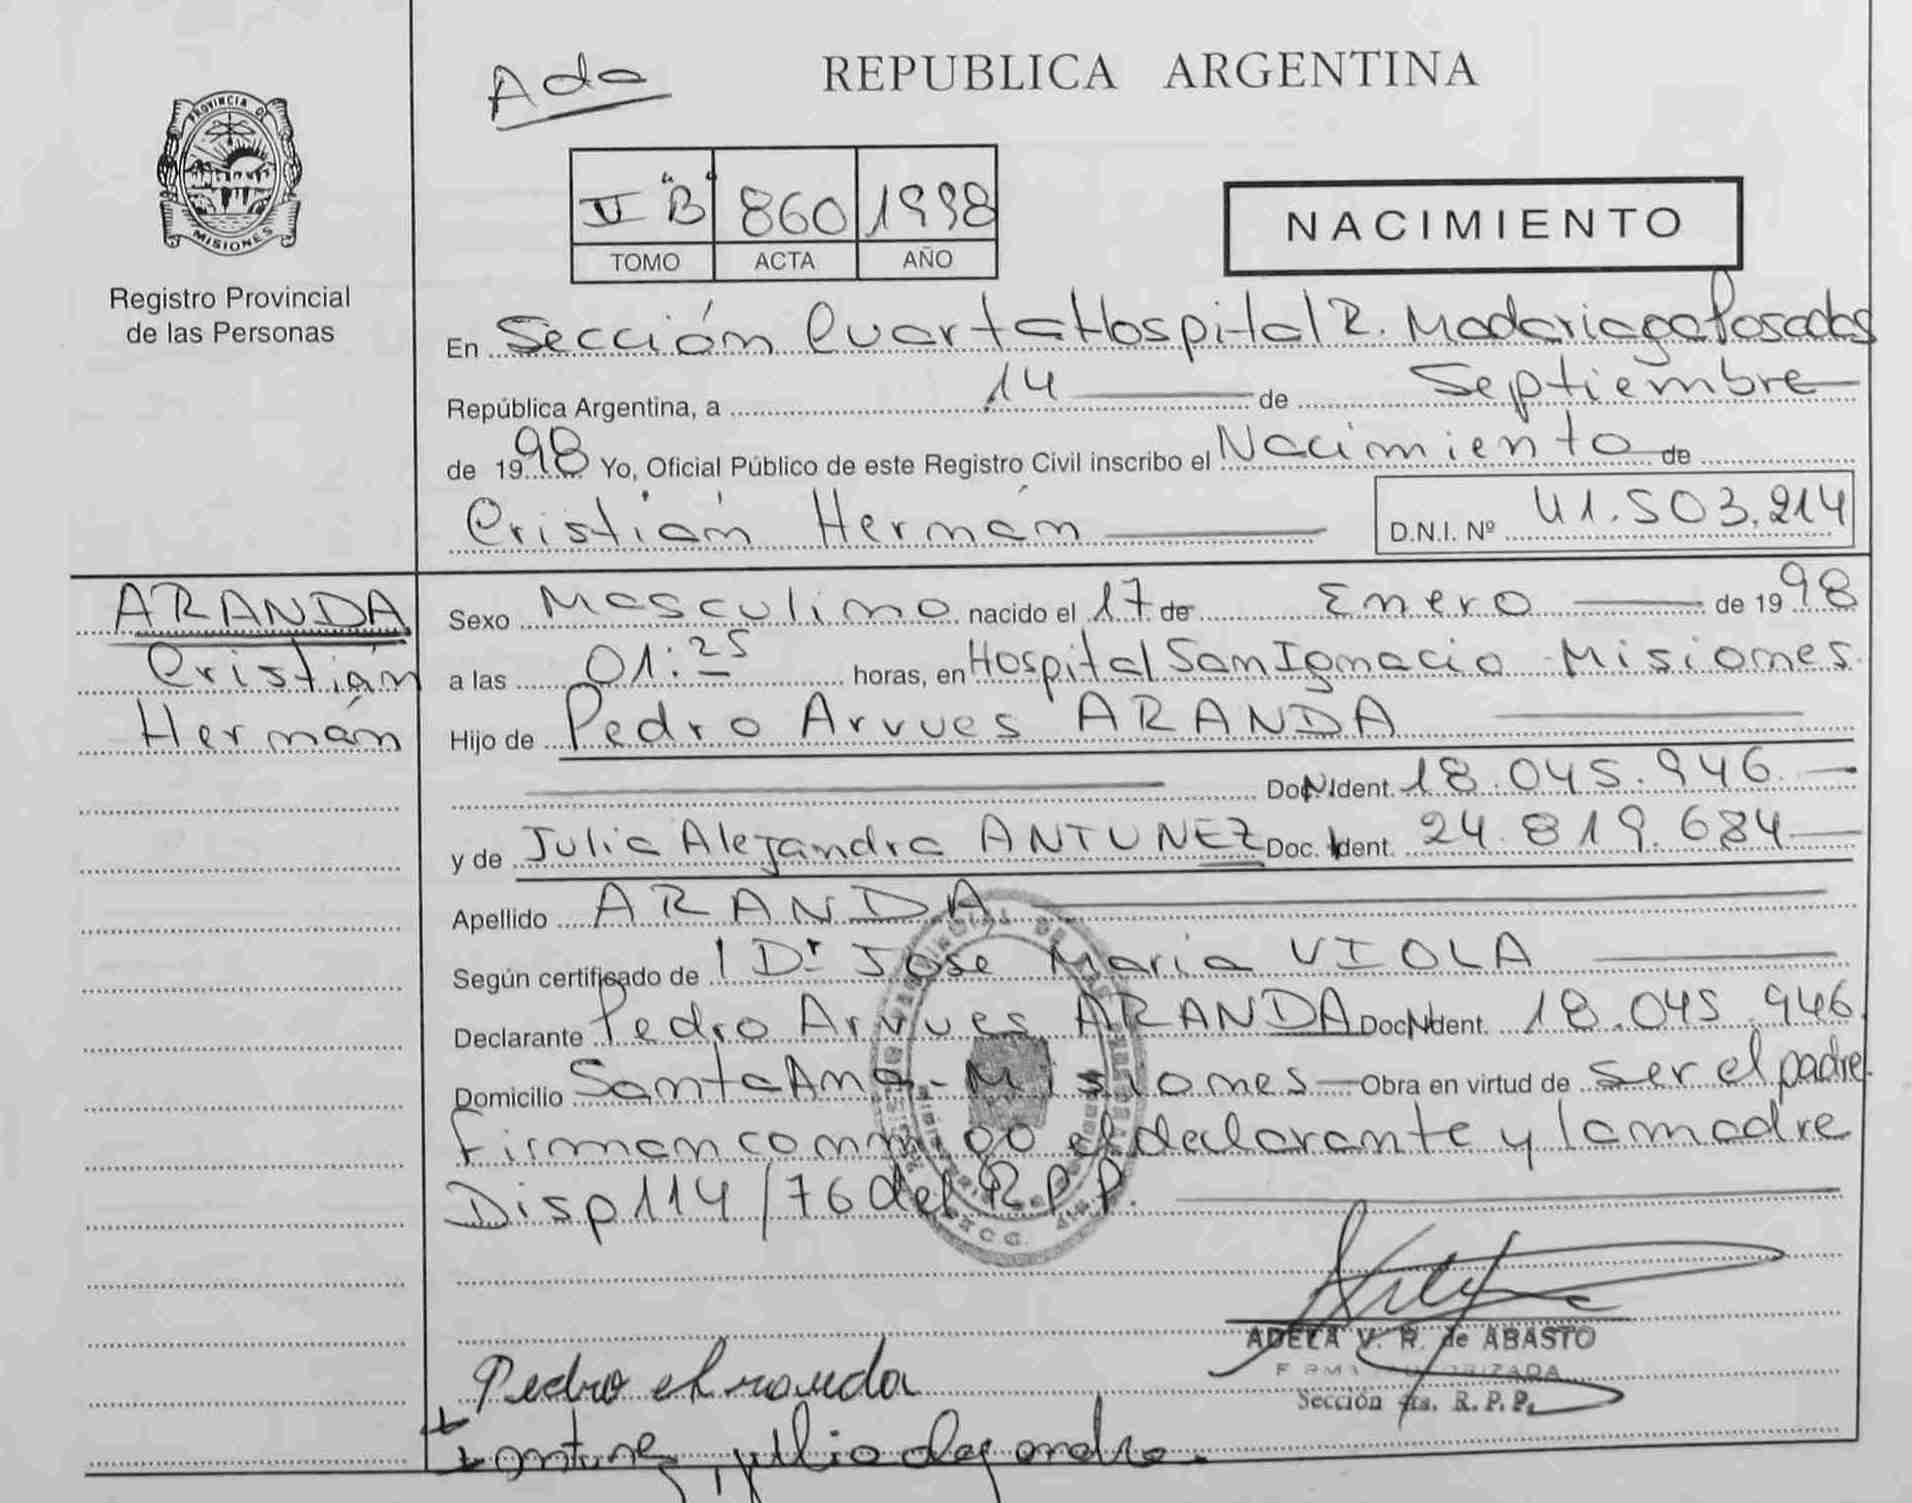 Ada
REPUBLICA ARGENTINA
PROVINCIA D
MISIONES
Registro Provincial
de las Personas
II "B" 860 1998
TOMO ACTA AÑO
NACIMIENTO
En Sección Cuarta Hospital R. Madariaga Posadas
República Argentina, a 14 de Septiembre
de 1998 Yo, Oficial Público de este Registro Civil inscribo el Nacimiento de
Cristián Hernán D.N.I. Nº 41.503.214
ARANDA
Cristián
Hernán
Sexo Masculino nacido el 17 de Enero de 1998
a las 01:25 horas, en Hospital San Ignacio - Misiones
Hijo de Pedro Arvues ARANDA
Doc. Ident. 18.045.946
y de Julia Alejandra ANTUNEZ Doc. Ident. 24.819.684
Apellido ARANDA
Según certificado de l Dr Jose Maria VIOLA
Declarante Pedro Arvues ARANDA Doc. Ident. 18.045.946
Domicilio Santa Ana - Misiones Obra en virtud de ser el padre
firman conmigo el declarante y la madre
Disp 114/76 del R.P.P.
ADELA V. R. de ABASTO
FIRMA AUTORIZADA
Sección 4ta. R. P. P.
Pedro Aranda